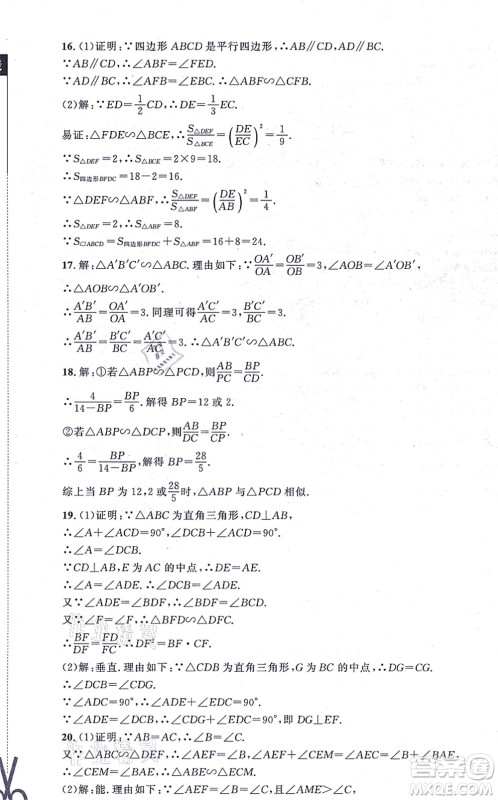 16. (1)证明：∵四边形 ABCD 是平行四边形，∴AB∥DC，AD∥BC.
∵AB∥CD，∴∠ABF=∠FED.
∵AD∥BC，∴∠AFB=∠FBC.
(2)解：∵ED=1/2 CD，∴DE=1/3 EC.
易证：△FDE∽△BCE，∴S△DEF/S△BCE=(DE/EC)²=1/9.
∵S△DEF=2，∴S△BCE=2×9=18.
∴S四边形BFDC=18-2=16.
∵△DEF∽△ABF，∴S△DEF/S△ABF=(DE/AB)²=1/4.
∴S△ABF=8.
∵S▱ABCD=S四边形BFDC+S△ABF=16+8=24.
17. 解：△A′B′C′∽△ABC. 理由如下：∵OA′/OA=OB′/OB=3，∠AOB=∠A′OB′，
∴△AOB∽△A′OB′.
∴A′B′/AB=OA′/OA=3. 同理可得B′C′/BC=3，A′C′/AC=3.
∴A′B′/AB=B′C′/BC=A′C′/AC. ∴△A′B′C′∽△ABC.
18. 解：①若△ABP∽△PCD，则AB/PC=BP/CD.
∴4/(14-BP)=BP/6. 解得 BP=12 或 2.
②若△ABP∽△DCP，则AB/DC=BP/CP.
∴4/6=BP/(14-BP)，解得 BP=28/5.
综上当 BP 为 12，2 或28/5时，△ABP 与△PCD 相似.
19. (1)证明：∵△ABC 为直角三角形，CD⊥AB，
∴∠A+∠ACD=∠ACD+∠DCB=90°，
∴∠A=∠DCB.
∵CD⊥AB，E 为 AC 的中点，∴DE=AE.
∴∠A=∠EDA.
又∵∠ADE=∠BDF，∴∠BDF=∠DCF.
又∵∠F=∠F，∴△FDB∽△FCD.
∴BF/DF=FD/FC. ∴DF²=BF·CF.
(2)解：垂直. 理由如下：∵△CDB 为直角三角形，G 为 BC 的中点，
∴GD=GC. ∴∠GDC=∠GCD.
∵∠ADC=90°，∴∠A+∠ECD=90°.
∴∠EDC+∠CDG=∠ECD+∠GCD=90°，即 ED⊥DG.
20. (1)证明：∵AB=AC，∴∠B=∠C.
又∵∠AEF+∠CEM=∠AEC=∠B+∠BAE，∠AEF=∠B，